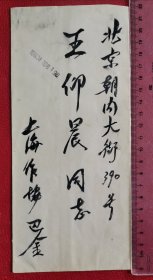 北京朝内大街390号
王仰晨同志
上海作协 巴金